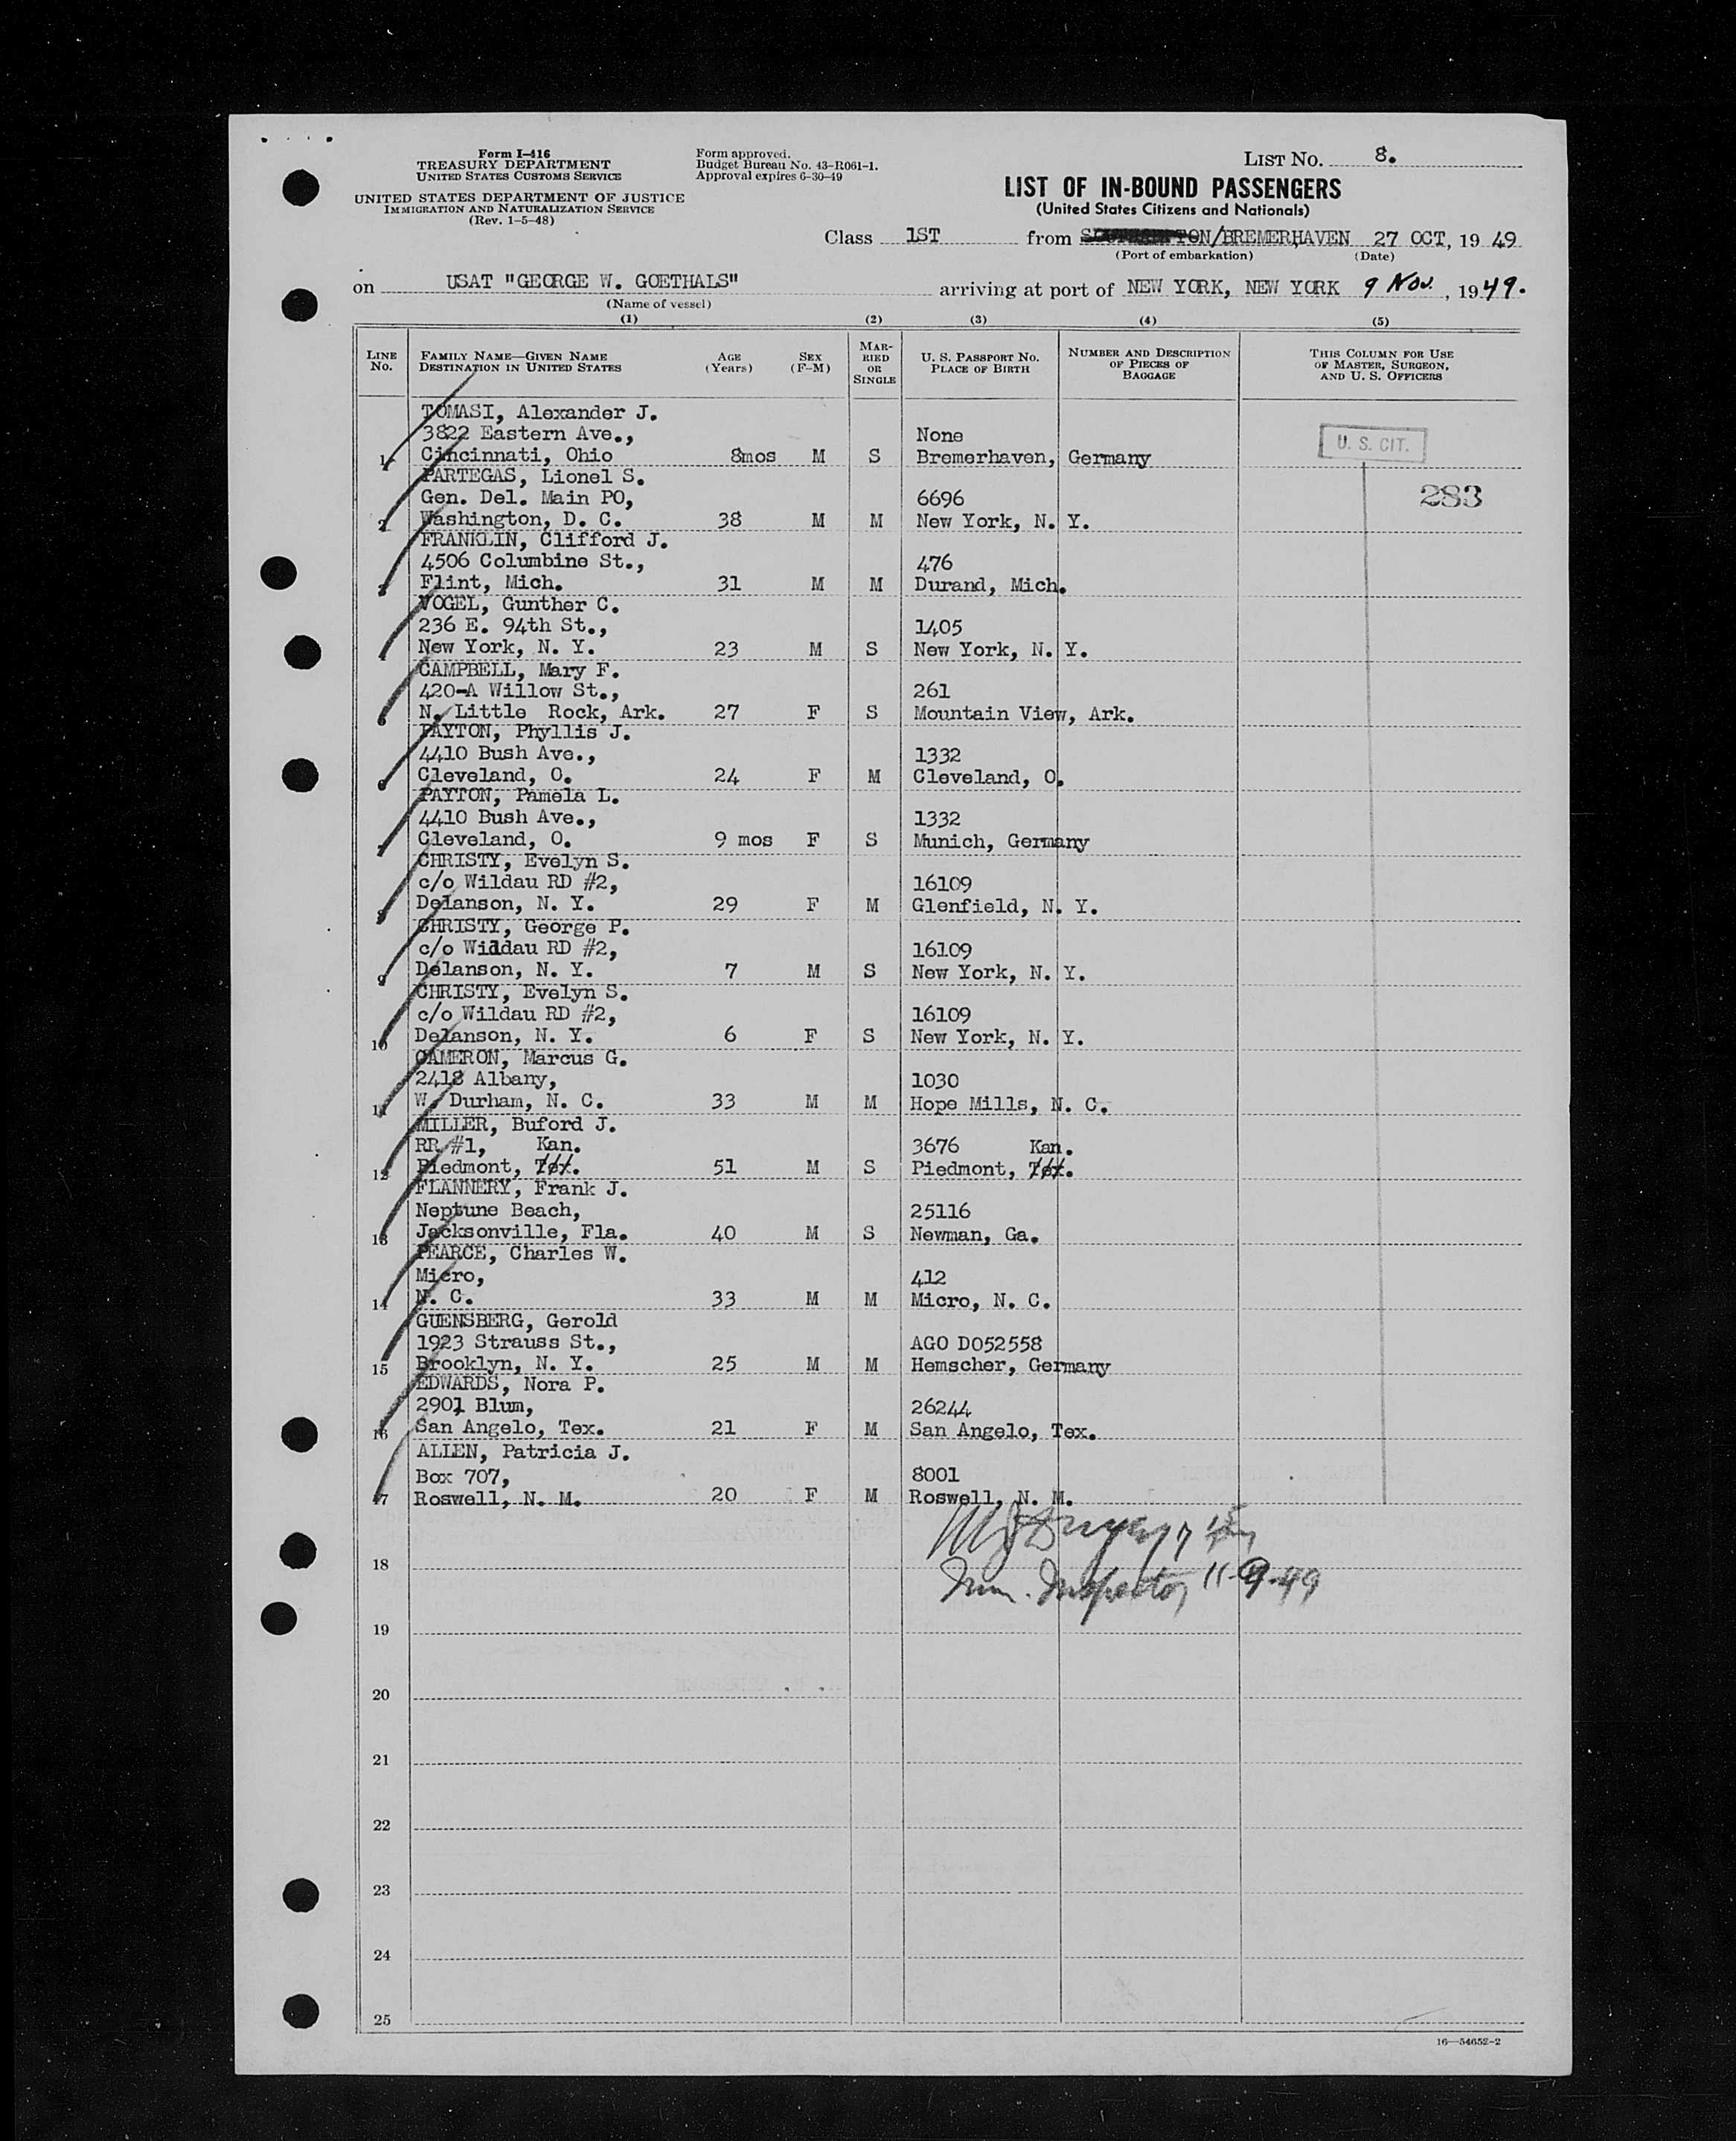 Form I-416
TREASURY DEPARTMENT
UNITED STATES CUSTOMS SERVICE
UNITED STATES DEPARTMENT OF JUSTICE
IMMIGRATION AND NATURALIZATION SERVICE
(Rev. 1-5-48)
Form approved.
Budget Bureau No. 43-R061-1.
Approval expires 6-30-49
LIST NO. 8.
LIST OF IN-BOUND PASSENGERS
(United States Citizens and Nationals)
Class 1ST from /BREMERHAVEN 27 OCT, 19 49
(Port of embarkation) (Date)
on USAT "GEORGE W. GOETHALS" arriving at port of NEW YORK, NEW YORK 9 Nov., 1949.
(Name of vessel)
(1) (2) (3) (4) (5)
LINE No. FAMILY NAME—GIVEN NAME DESTINATION IN UNITED STATES AGE (Years) SEX (F-M) MARRIED OR SINGLE U. S. PASSPORT NO. PLACE OF BIRTH NUMBER AND DESCRIPTION OF PIECES OF BAGGAGE THIS COLUMN FOR USE OF MASTER, SURGEON, AND U. S. OFFICERS
TOMASI, Alexander J.
3822 Eastern Ave., None U. S. CIT.
1 Cincinnati, Ohio 8mos M S Bremerhaven, Germany
PARTEGAS, Lionel S.
Gen. Del. Main PO, 6696 283
2 Washington, D. C. 38 M M New York, N. Y.
FRANKLIN, Clifford J.
4506 Columbine St., 476
3 Flint, Mich. 31 M M Durand, Mich.
VOGEL, Gunther C.
236 E. 94th St., 1405
4 New York, N. Y. 23 M S New York, N. Y.
CAMPBELL, Mary F.
420-A Willow St., 261
5 N. Little Rock, Ark. 27 F S Mountain View, Ark.
PAYTON, Phyllis J.
4410 Bush Ave., 1332
6 Cleveland, O. 24 F M Cleveland, O.
PAYTON, Pamela L.
4410 Bush Ave., 1332
7 Cleveland, O. 9 mos F S Munich, Germany
CHRISTY, Evelyn S.
c/o Wildau RD #2, 16109
8 Delanson, N. Y. 29 F M Glenfield, N. Y.
CHRISTY, George P.
c/o Wildau RD #2, 16109
9 Delanson, N. Y. 7 M S New York, N. Y.
CHRISTY, Evelyn S.
c/o Wildau RD #2, 16109
10 Delanson, N. Y. 6 F S New York, N. Y.
CAMERON, Marcus G.
2418 Albany, 1030
11 W. Durham, N. C. 33 M M Hope Mills, N. C.
MILLER, Buford J.
RR #1, Kan. 3676 Kan.
12 Piedmont, Tex. 51 M S Piedmont, Tex.
FLANNERY, Frank J.
Neptune Beach, 25116
13 Jacksonville, Fla. 40 M S Newman, Ga.
PEARCE, Charles W.
Micro, 412
14 N. C. 33 M M Micro, N. C.
GUENSBERG, Gerold
1923 Strauss St., AGO D052558
15 Brooklyn, N. Y. 25 M M Hemscher, Germany
EDWARDS, Nora P.
2901 Blum, 26244
16 San Angelo, Tex. 21 F M San Angelo, Tex.
ALLEN, Patricia J.
Box 707, 8001
17 Roswell, N. M. 20 F M Roswell, N. M.
18
Imm. Inspector 11-9-49
19
20
21
22
23
24
25
16—54652-2